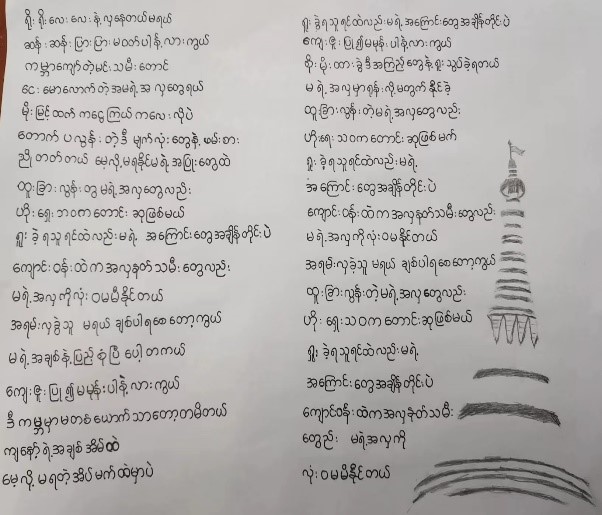 ရိုး ရိုးလေး လေး နဲ့ လှနေတယ်မရယ်
ဆန်း ဆန်း ပြားပြား မဟတ်ပါနဲ့ လားကွယ်
ကမ္ဘာကျော်တဲ့မင်းသမီး တောင်
ငေး မောလောက်တဲ့ အမရဲ့ အလှတွေရယ်
မိုး မြင့်ထက် ကငွေ့ကြယ် ကလေး လိုပဲ
တောက် ပ လွန်း တဲ့ ဒီ မျက်လုံး တွေနဲ့ ဖမ်းစား
ညို့ တတ်တယ် မေ့လို့မရနိုင်မရဲ့ အပြုံးတွေထဲ
ထူးခြားလွန်း တွ မရဲ့ အလှတွေလည်း
ဟိုး ရှေး ဘဝက တောင်း ဆုဖြစ်မယ်
ရူး ခဲ့ ရသူ ရင်ထဲလည်း မရဲ့ အကြောင်းတွေအချိန်တိုင်းပဲ
ကျောင်းဝန်းထဲ က အလှနတ်သမီးတွေလည်း
မရဲ့ အလှ ကိုလုံး ဝမမီနိုင်တယ်
အရမ်းလှခဲ့သူ မရယ် ချစ်ပါရစေ တော့ကွယ်
မ ရဲ့ အချစ်နဲ့ ပြည့် နှံ ပြီ ပေါ့ တကယ်
ကျေးဇူး ပြု ၍ မမုန်းပါနဲ့ လားကွယ်
ဒီ ကမ္ဘာမှာ မတစ်ယောက် သာတော့တမိတယ်
ကျနော့် ရဲ့ အချစ် အိမ်ထဲ
မေ့လို့ မ ရတဲ့ အိပ် မက် ထဲမှာပဲ
ရူး ခဲ့ ရသူ ရင်ထဲလည်း မရဲ့ အကြောင်းတွေအချိန်တိုင်းပဲ
ကျေးဇူး ပြု၍ မမုန်း ပါနဲ့ လားကွယ်
စိုးမိုး ထား ခဲ့ ဒီအကြည့်တွေနဲ့ ရူး သွပ်ခဲ့ရတယ်
မ ရဲ့ အလှမှာ ရုန်း လို့မထွက် နိုင်ခဲ့
ထူးခြားလွန်းတဲ့မရဲ့ အလှတွေလည်း
ဟိုးရှေး သဝက တောင်း ဆုဖြစ်မက်
ရူး ခဲ့ ရသူရင်ထဲလည်း မရဲ့
အကြောင်းတွေအချိန်တိုင်းပဲ
ကျောင်းဝန်းထဲက အလှနတ်သမီးတွေလည်း
မ ရဲ့ အလှကိုလုံး ဝမနိုင်တယ်
အရမ်းလှခဲ့သူ မရယ် ချစ်ပါရစေတော့ကွယ်
ထူးခြားလွန်းတဲ့မရဲ့ အလှတွေလည်း
ဟိုး ရှေးသဝက တောင်းဆုဖြစ်မယ်
ရူး ခဲ့ရသူရင်ထဲလည်း မရဲ့
အကြောင်းတွေအချိန်တိုင်းပဲ
ကျောင်ဝန်းထဲကအလှနတ်သမီး
တွေည်း မရဲ့အလှကို
လုံးဝမမိနိုင်တယ်